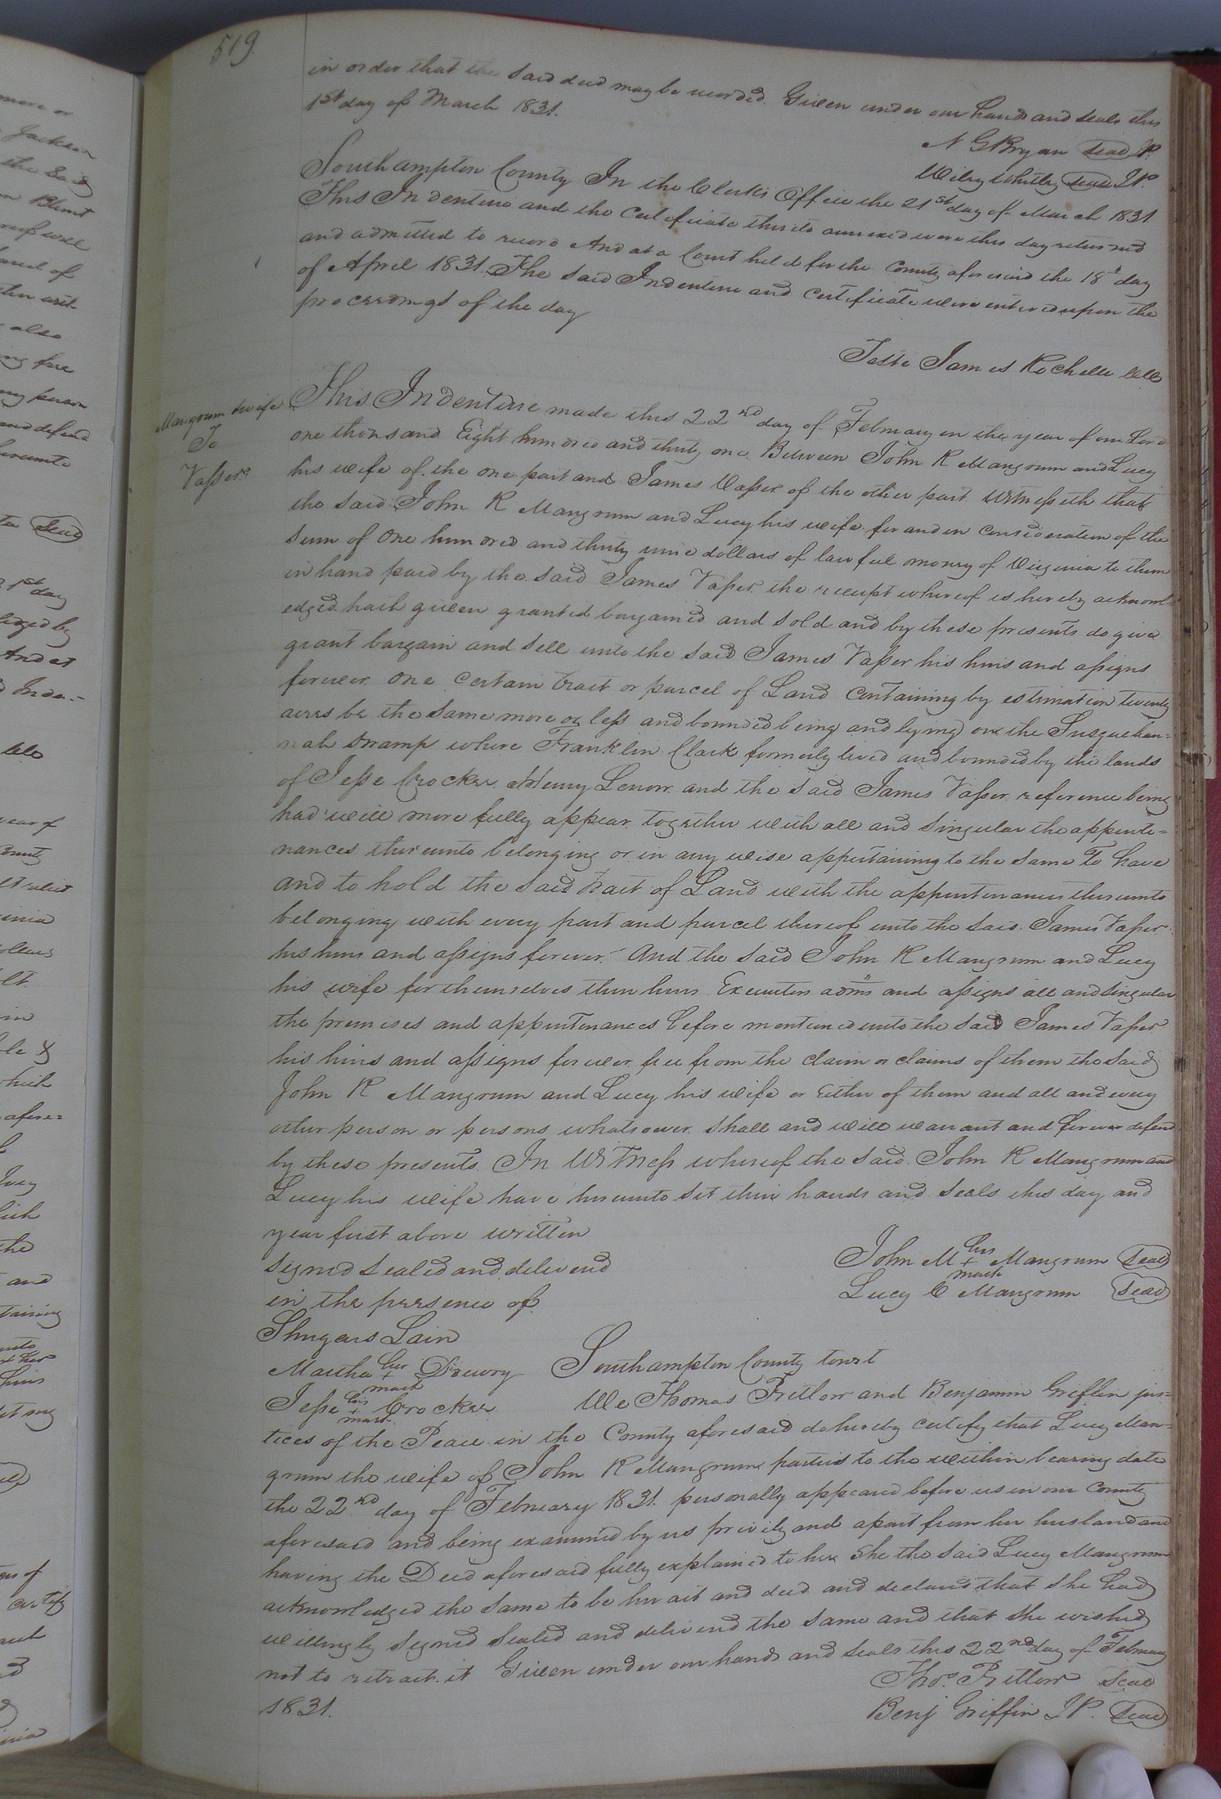 519
in order that the said deed may be recorded. Given under our hands and seals this
1st day of March 1831.
N G Bryan Seal JP.
Wiley Whitley Seal J.P.
Southampton County In the Clerk's Office the 21st day of March 1831
This Indenture and the Certificate thereto annexed were this day returned
and admitted to record And at a Court held for the County aforesaid the 18th day
of April 1831. The said Indenture and Certificate were entered upon the
proceedings of the day
Teste James Rochelle Clk
Mangrum & wife
To
Vasser
This Indenture made this 22nd day of February in the year of our Lord
one thousand Eight hundred and thirty one Between John R Mangrum and Lucy
his wife of the one part and James Vasser of the other part Witnesseth that
the said John R Mangrum and Lucy his wife for and in consideration of the
Sum of One hundred and thirty nine dollars of lawful money of Virginia to them
in hand paid by the said James Vasser the receipt whereof is hereby acknowl
edged hath given granted bargained and sold and by these presents do give
grant bargain and sell unto the said James Vasser his heirs and assigns
forever one certain tract or parcel of Land containing by estimation twenty
acres be the same more or less and bounded being and lying on the Susquehan=
nah swamp where Franklin Clark formerly lived and bounded by the lands
of Jesse Crocker Henry Lenow and the said James Vasser reference being
had will more fully appear together with all and singular the appurte=
nances thereunto belonging or in any wise appertaining to the same To have
and to hold the said tract of Land with the appurtenances thereunto
belonging with every part and parcel thereof unto the said James Vasser
his heirs and assigns forever. And the said John R Mangrum and Lucy
his wife for themselves their heirs Executors adms and assigns all and singular
the premises and appurtenances before mentioned unto the said James Vasser
his heirs and assigns forever free from the claim or claims of them the said
John R Mangrum and Lucy his wife or Either of them and all and every
other person or persons whatsoever shall and will warrant and forever defend
by these presents. In Witness whereof the said John R Mangrum and
Lucy his wife have hereunto set their hands and seals this day and
year first above written
Signed Sealed and delivered
in the presence of
John M his + mark Mangrum Seal
Lucy C Mangrum Seal
Shugars Lain
Martha her + mark Drewry
Jesse his + mark Crocker
Southampton County towit
We Thomas Pretlow and Benjamin Griffin jus=
tices of the Peace in the County aforesaid do hereby certify that Lucy Man=
grum the wife of John R Mangrum parties to the within bearing date
the 22nd day of February 1831 personally appeared before us in our County
aforesaid and being examined by us privily and apart from her husband and
having the Deed aforesaid fully explained to her she the said Lucy Mangrum
acknowledged the same to be her act and deed and declared that she had
willingly signed Sealed and delivered the same and that she wished
not to retract it Given under our hands and seals this 22nd day of February
1831.
Thos. Pretlow Seal
Benj Griffin J.P. Seal